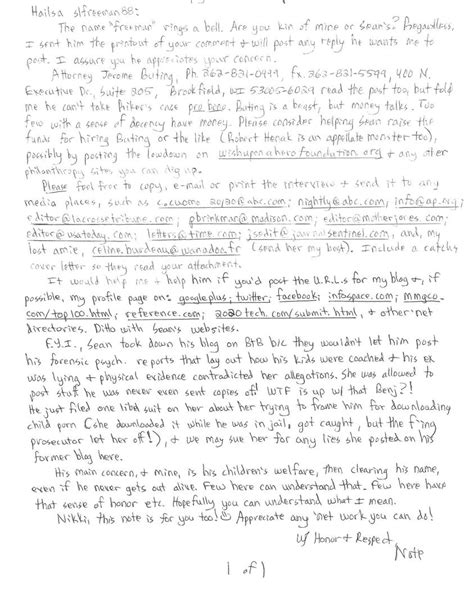 Hailsa slfreeman88:
The name "freeman" rings a bell. Are you kin of mine or Sean's? Regardless,
I sent him the printout of your comment + will post any reply he wants me to
post. I assure you he appreciates your concern.
Attorney Jerome Buting, Ph. 262-821-0999, fx. 262-821-5599, 400 N.
Executive Dr., Suite 205, Brookfield, WI 53005-6029 read the post too, but told
me he can't take Piker's case pro bono. Buting is a beast, but money talks. Too
few with a sense of decency have money. Please consider helping Sean raise the
funds for hiring Buting or the like (Robert Henak is an appellate monster too),
possibly by posting the lowdown on wishuponaherofoundation.org + any other
philanthropy sites you can dig up.
Please feel free to copy, e-mail or print the interview + send it to any
media places, such as c.cuomo.2020@abc.com; nightly@abc.com, info@ap.org;
editor@lacrossetribune.com; pbrinkman@madison.com; editor@motherjones.com;
editor@usatoday.com; letters@time.com; jsedit@journalsentinel.com, and, my
lost amie, celine.burdeau@wanadoo.fr (send her my best). Include a catchy
cover letter so they read your attachment.
It would help me + help him if you'd post the U.R.L.s for my blog +, if
possible, my profile page on: googleplus; twitter; facebook; infospace.com; mmgco.
com/top100.html, reference.com; 2020tech.com/submit.html, + other 'net
directories. Ditto with Sean's websites.
F.Y.I., Sean took down his blog on BtB b/c they wouldn't let him post
his forensic psych. reports that lay out how his kids were coached + his ex
was lying + physical evidence contradicted her allegations. She was allowed to
post stuff he was never even sent copies of! WTF is up w/ that Benj?!
He just filed one libel suit on her about her trying to frame him for downloading
child porn (she downloaded it while he was in jail, got caught, but the f'ing
prosecutor let her off!), + we may sue her for any lies she posted on his
former blog here.
His main concern, + mine, is his children's welfare, then clearing his name,
even if he never gets out alive. Few here can understand that. Few here have
that sense of honor etc. Hopefully you can understand what I mean.
Nikki, this note is for you too! Appreciate any 'net work you can do!
w/ Honor + Respect,
Nate
1 of 1